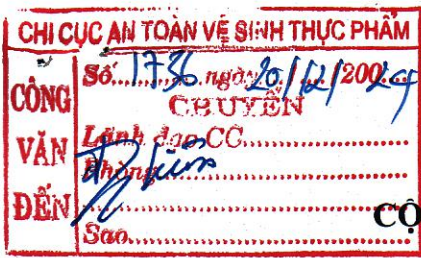 CHI CỤC AN TOÀN VỆ SINH THỰC PHẨM
CÔNG VĂN ĐẾN
Số 1736 ngày 20/12/200 24
CHUYỂN
Lãnh đạo CC
Phòng
Sao
CỘ